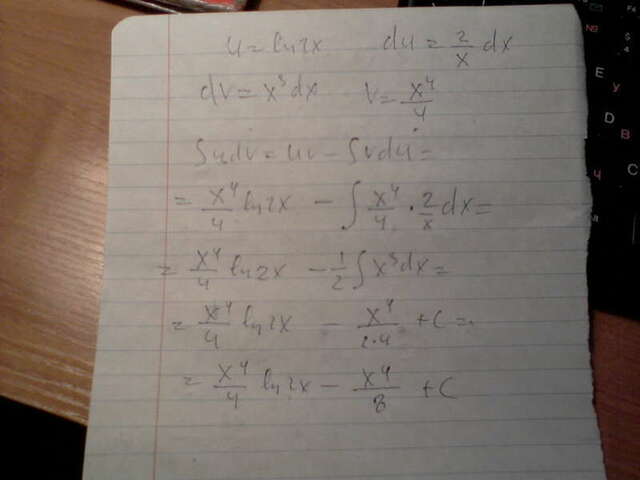 u = ln 2x    du = 2/x dx
dv = x³dx    v = x⁴/4
∫udv = uv - ∫vdu =
= x⁴/4 ln 2x - ∫ x⁴/4 · 2/x dx =
= x⁴/4 ln 2x - 1/2 ∫ x³dx =
= x⁴/4 ln 2x - x⁴/2·4 + C =
= x⁴/4 ln 2x - x⁴/8 + C
E У
D В
Ч
С